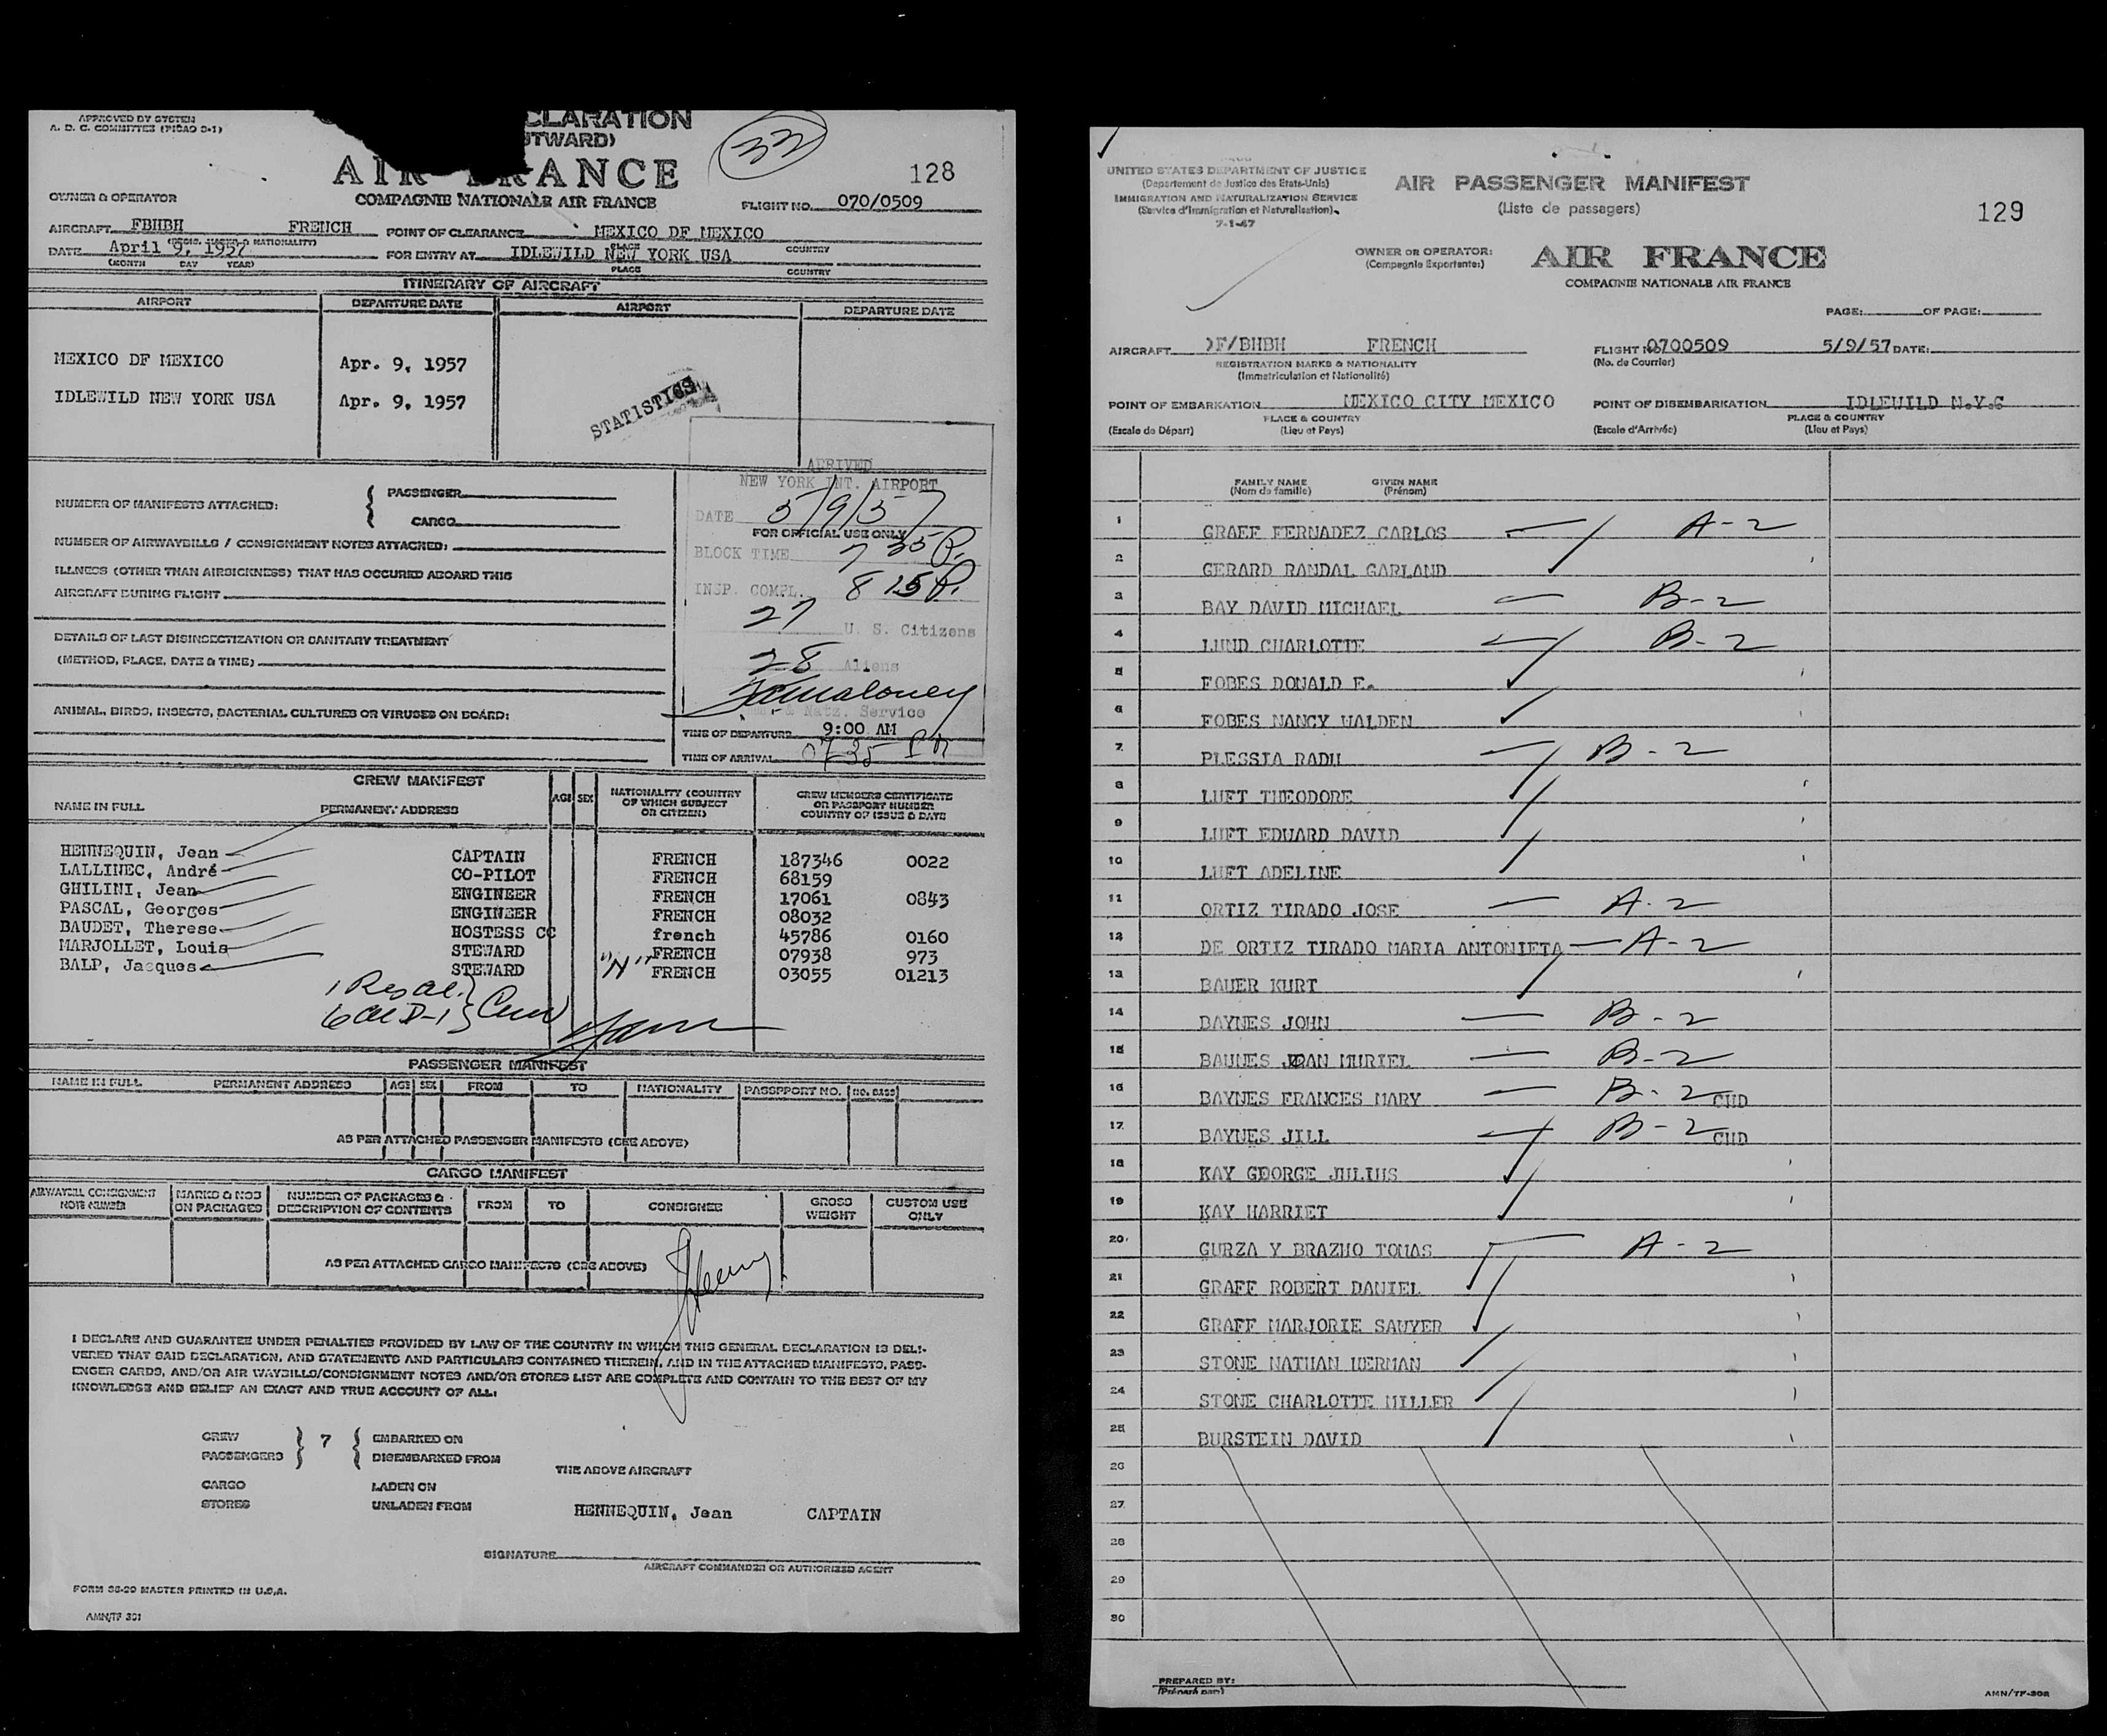 APPROVED BY SYSTEM
A. D. C. COMMITTEE (PICAO 3-1)
CLARATION
TWARD)
33
AIR FRANCE
128
OWNER & OPERATOR
COMPAGNIE NATIONALE AIR FRANCE
FLIGHT NO. 070/0509
AIRCRAFT FBHBH FRENCH POINT OF CLEARANCE MEXICO DF MEXICO
& NATIONALITY) PLACE COUNTRY
DATE April 9, 1957 FOR ENTRY AT IDLEWILD NEW YORK USA
(MONTH DAY YEAR) PLACE COUNTRY
ITINERARY OF AIRCRAFT
AIRPORT DEPARTURE DATE AIRPORT DEPARTURE DATE
MEXICO DF MEXICO Apr. 9, 1957
IDLEWILD NEW YORK USA Apr. 9, 1957
STATISTICS
ARRIVED
NEW YORK INT. AIRPORT
DATE 5/9/57
FOR OFFICIAL USE ONLY
BLOCK TIME 7 35 P.
INSP. COMPL. 8 15 P.
27 U. S. Citizens
28 Aliens
& Natz. Service
NUMBER OF MANIFESTS ATTACHED: { PASSENGER
CARGO
NUMBER OF AIRWAYBILLS / CONSIGNMENT NOTES ATTACHED:
ILLNESS (OTHER THAN AIRSICKNESS) THAT HAS OCCURED ABOARD THIS
AIRCRAFT DURING FLIGHT
DETAILS OF LAST DISINSECTIZATION OR SANITARY TREATMENT
(METHOD, PLACE, DATE & TIME)
ANIMAL, BIRDS, INSECTS, BACTERIAL CULTURES OR VIRUSES ON BOARD:
TIME OF DEPARTURE 9:00 AM
TIME OF ARRIVAL 0735 PM
CREW MANIFEST
NAME IN FULL PERMANENT ADDRESS AGE SEX NATIONALITY (COUNTRY OF WHICH SUBJECT OR CITIZEN) CREW MEMBERS CERTIFICATE OR PASSPORT NUMBER COUNTRY OF ISSUE & DATE
HENNEQUIN, Jean CAPTAIN FRENCH 187346 0022
LALLINEC, André CO-PILOT FRENCH 68159
GHILINI, Jean ENGINEER FRENCH 17061 0843
PASCAL, Georges ENGINEER FRENCH 08032
BAUDET, Therese HOSTESS CC french 45786 0160
MARJOLLET, Louis STEWARD FRENCH 07938 973
BALP, Jacques STEWARD "N" FRENCH 03055 01213
PASSENGER MANIFEST
NAME IN FULL PERMANENT ADDRESS AGE SEX FROM TO NATIONALITY PASSPPORT NO. NO. BAGS
AS PER ATTACHED PASSENGER MANIFESTS (SEE ABOVE)
CARGO MANIFEST
AIRWAYBILL CONSIGNMENT NOTE NUMBER MARKS & NOS ON PACKAGES NUMBER OF PACKAGES & DESCRIPTION OF CONTENTS FROM TO CONSIGNEE GROSS WEIGHT CUSTOM USE ONLY
AS PER ATTACHED CARGO MANIFESTS (SEE ABOVE)
I DECLARE AND GUARANTEE UNDER PENALTIES PROVIDED BY LAW OF THE COUNTRY IN WHICH THIS GENERAL DECLARATION IS DELI-
VERED THAT SAID DECLARATION, AND STATEMENTS AND PARTICULARS CONTAINED THEREIN, AND IN THE ATTACHED MANIFESTS, PASS-
ENGER CARDS, AND/OR AIR WAYBILLS/CONSIGNMENT NOTES AND/OR STORES LIST ARE COMPLETE AND CONTAIN TO THE BEST OF MY
KNOWLEDGE AND BELIEF AN EXACT AND TRUE ACCOUNT OF ALL:
CREW } 7 { EMBARKED ON
PASSENGERS DISEMBARKED FROM
THE ABOVE AIRCRAFT
CARGO LADEN ON
STORES UNLADEN FROM
HENNEQUIN, Jean CAPTAIN
SIGNATURE
AIRCRAFT COMMANDER OR AUTHORIZED AGENT
FORM 36-20 MASTER PRINTED IN U.S.A.
AMN/TF 301
UNITED STATES DEPARTMENT OF JUSTICE
(Departement de Justice des Etats-Unis)
IMMIGRATION AND NATURALIZATION SERVICE
(Service d'Immigration et Naturalisation)
7-1-47
AIR PASSENGER MANIFEST
(Liste de passagers)
129
OWNER OR OPERATOR:
(Compagnie Exportante:)
AIR FRANCE
COMPAGNIE NATIONALE AIR FRANCE
PAGE: OF PAGE:
AIRCRAFT F/BHBH FRENCH FLIGHT NO. 0700509 5/9/57 DATE:
REGISTRATION MARKS & NATIONALITY (No. de Courrier)
(Immatriculation et Nationalité)
POINT OF EMBARKATION MEXICO CITY MEXICO POINT OF DISEMBARKATION IDLEWILD N.Y.C
PLACE & COUNTRY PLACE & COUNTRY
(Escale de Départ) (Lieu et Pays) (Escale d'Arrivée) (Lieu et Pays)
FAMILY NAME GIVEN NAME
(Nom de famille) (Prénom)
1 GRAEF FERNADEZ CARLOS A-2
2 GERARD RANDAL GARLAND
3 BAY DAVID MICHAEL B-2
4 LUND CHARLOTTE B-2
5 FOBES DONALD E.
6 FOBES NANCY WALDEN
7 PLESSIA RADU B-2
8 LUFT THEODORE
9 LUFT EDUARD DAVID
10 LUFT ADELINE
11 ORTIZ TIRADO JOSE A-2
12 DE ORTIZ TIRADO MARIA ANTONIETA A-2
13 BAUER KURT
14 BAYNES JOHN B-2
15 BAUNES JEAN MURIEL B-2
16 BAYNES FRANCES MARY B-2 CHD
17 BAYNES JILL B-2 CHD
18 KAY GEORGE JULIUS
19 KAY HARRIET
20 GURZA Y BRAZHO TOMAS A-2
21 GRAFF ROBERT DANIEL
22 GRAFF MARJORIE SAWYER
23 STONE NATHAN HERMAN
24 STONE CHARLOTTE MILLER
25 BURSTEIN DAVID
26
27
28
29
30
PREPARED BY:
(Préparé par)
AMN/TF-302